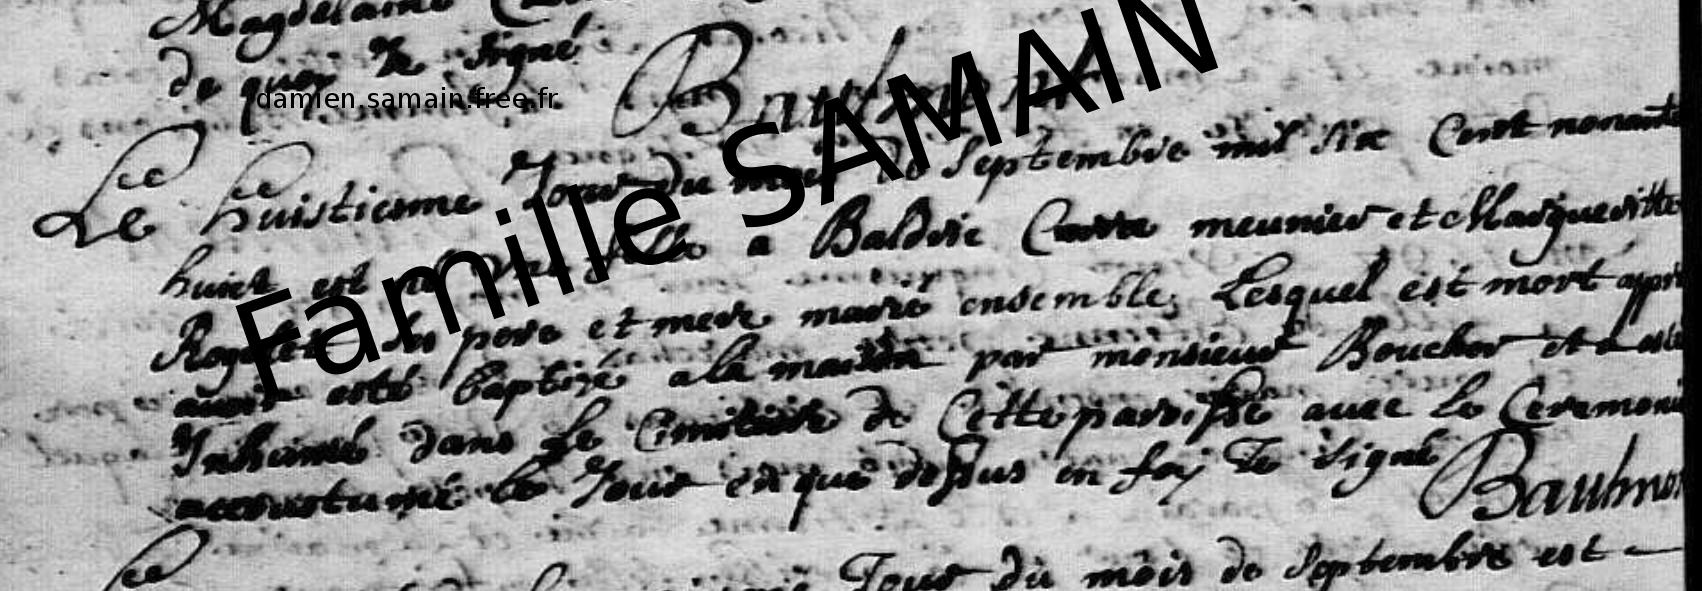 Magdelaine
de quoy Je signé
damien.samain.free.fr
Baulmont
Famille SAMAIN
Le huistiesme Jour du mois de Septembre mil six Cent nonante
huict est né une fille a Baldric Carre meunier et Margueritte
ses pere et mere mariés ensemble, Lesquel est mort apres
auoir esté baptizé a la maison par monsieur Boucher et a esté
Inhumé dans le Cimitiere de Cette paroisse auec le Ceremonie
accoustumé le Jour que dessus en foy Je signé Baulmon
Jour du mois de Septembre est